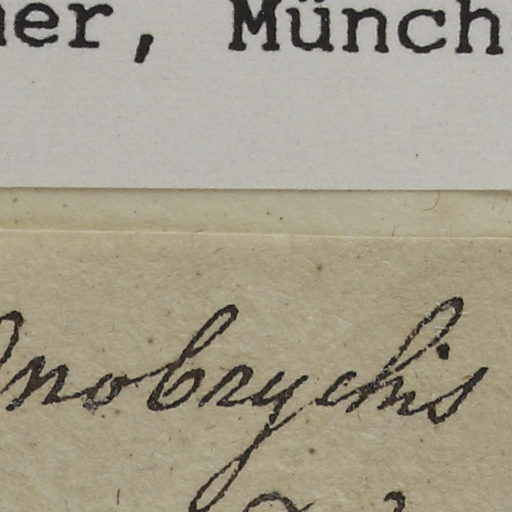 er, Münch
Onobrychis